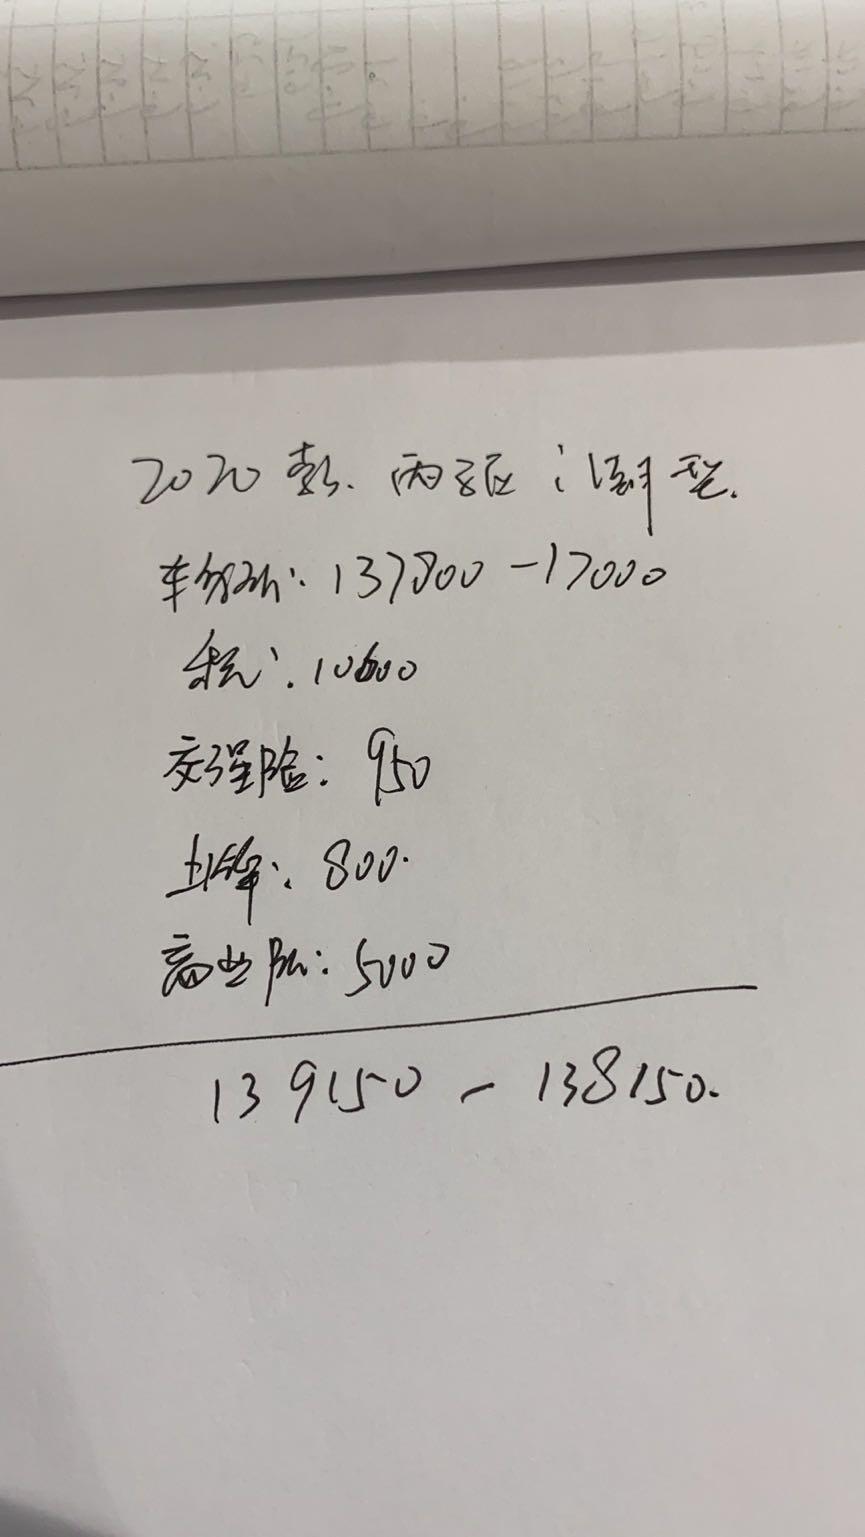 2020款. 两驱 i潮型.
车 : 137800 - 17000
税: 10600
交强险: 950
上牌: 800.
商业险: 5000
139150 - 138150.